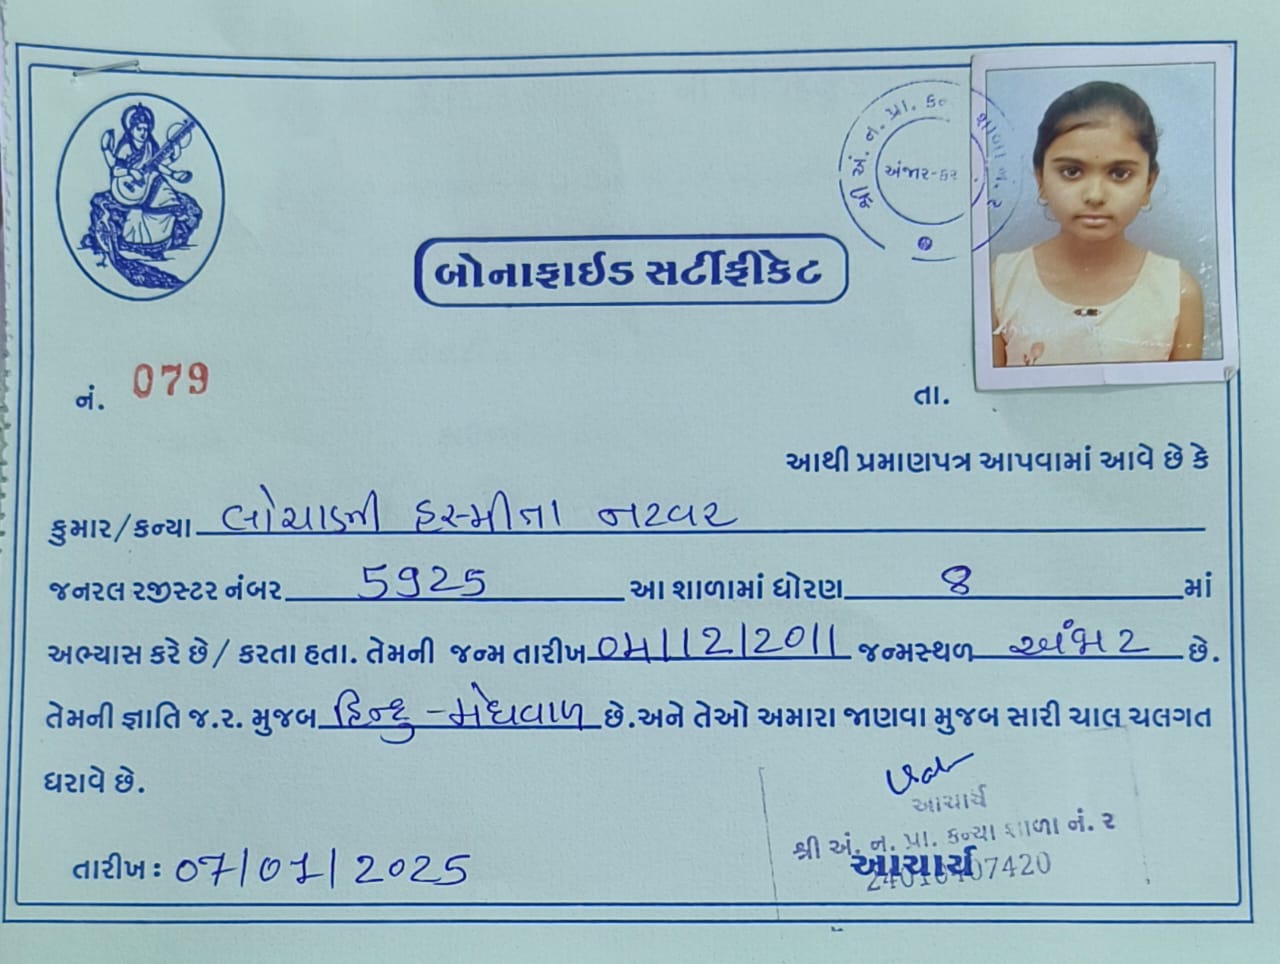 શ્રી અં. ન. પ્રા. કન્ શાળા નં. ૨
અંજાર-કચ્
બોનાફાઈડ સર્ટીફીકેટ
નં. 079
તા.
આથી પ્રમાણપત્ર આપવામાં આવે છે કે
કુમાર/કન્યા લોચાડની હસ્મીતા નટવર
જનરલ રજીસ્ટર નંબર 5925 આ શાળામાં ધોરણ 8 માં
અભ્યાસ કરે છે/ કરતા હતા. તેમની જન્મ તારીખ 04/12/2011 જન્મસ્થળ અંજાર છે.
તેમની જ્ઞાતિ જ.ર. મુજબ હિન્દુ - મેઘવાળ છે.અને તેઓ અમારા જાણવા મુજબ સારી ચાલ ચલગત
ધરાવે છે.
આચાર્ય
શ્રી અં. ન. પ્રા. કન્યા શાળા નં. ૨
તારીખ: 07/01/2025
આચાર્ય